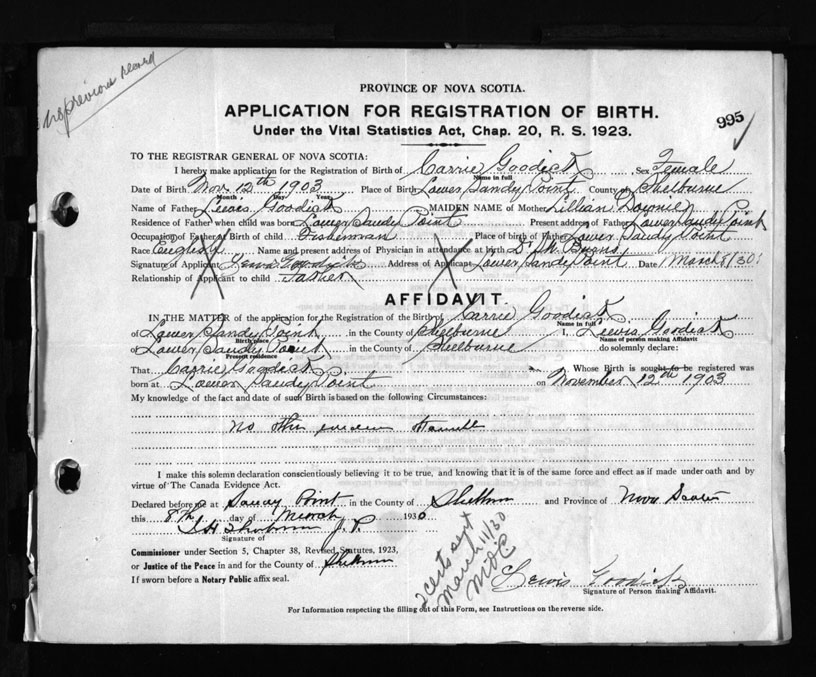 no previous record
PROVINCE OF NOVA SCOTIA.
APPLICATION FOR REGISTRATION OF BIRTH.
995
Under the Vital Statistics Act, Chap. 20, R. S. 1923.
TO THE REGISTRAR GENERAL OF NOVA SCOTIA:
I hereby make application for the Registration of Birth of Carrie Goodick Sex Female
Name in full
Date of Birth Nov. 12th 1903 Place of Birth Lower Sandy Point County of Shelburne
Month Day Year
Name of Father Lewis Goodick MAIDEN NAME of Mother Lillian Downie
Residence of Father when child was born Lower Sandy Point Present address of Father Lower Sandy Point
Occupation of Father at Birth of child Fisherman Place of birth of Father Lower Sandy Point
Race English Name and present address of Physician in attendance at birth Dr.
Signature of Applicant Lewis Goodick Address of Applicant Lower Sandy Point Date March 8/30
Relationship of Applicant to child Father
AFFIDAVIT.
IN THE MATTER of the application for the Registration of the Birth of Carrie Goodick
Name in full
of Lower Sandy Point in the County of Shelburne I, Lewis Goodick
Birth place Name of person making Affidavit
of Lower Sandy Point in the County of Shelburne do solemnly declare:
Present residence
That Carrie Goodick Whose Birth is sought to be registered was
born at Lower Sandy Point on November 12th 1903
My knowledge of the fact and date of such Birth is based on the following Circumstances:
no other
I make this solemn declaration conscientiously believing it to be true, and knowing that it is of the same force and effect as if made under oath and by
virtue of The Canada Evidence Act.
Declared before me at Sandy Point in the County of Shelburne and Province of Nova Scotia
this 8th day of March 1930
J.P.
Signature of
Commissioner under Section 5, Chapter 38, Revised Statutes, 1923,
or Justice of the Peace in and for the County of Shelburne
If sworn before a Notary Public affix seal.
2 certs sent
March 11/30
MDC
Lewis Goodick
Signature of Person making Affidavit.
For Information respecting the filling out of this Form, see Instructions on the reverse side.